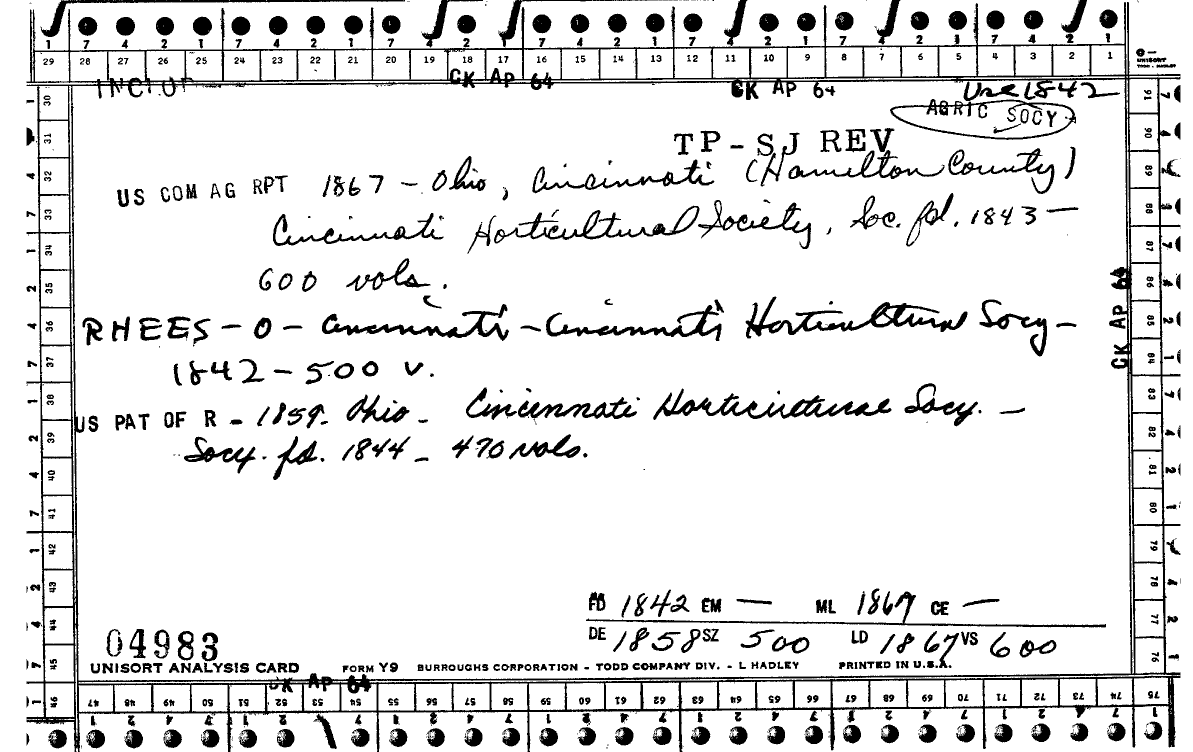 1 7 4 2 1 7 4 2 1 7 4 2 1 7 4 2 1 7 4 2 1 7 4 2 1 7 4 2 1
29 28 27 26 25 24 23 22 21 20 19 18 17 16 15 14 13 12 11 10 9 8 7 6 5 4 3 2 1
UNISORT
CK AP 64 CK AP 64 Use 1842
AGRIC SOCY
TP-SJ REV
US COM AG RPT 1867 - Ohio, Cincinnati (Hamilton County)
Cincinnati Horticultural Society, Soc. fd. 1843 —
600 vols.
RHEES - O - Cincinnati - Cincinnati Horticultural Socy -
1842 - 500 v.
US PAT OF R - 1859 - Ohio - Cincinnati Horticultural Socy. —
Socy. fd. 1844 - 470 vols.
CK AP 64
FD 1842 EM — ML 1867 CE —
DE 1858 SZ 500 LD 1867 VS 600
04983
UNISORT ANALYSIS CARD FORM Y9 BURROUGHS CORPORATION - TODD COMPANY DIV. - L HADLEY PRINTED IN U.S.A.
CK AP 64
30 31 32 33 34 35 36 37 38 39 40 41 42 43 44 45 46
91 90 89 88 87 86 85 84 83 82 81 80 79 78 77 76
47 48 49 50 51 52 53 54 55 56 57 58 59 60 61 62 63 64 65 66 67 68 69 70 71 72 73 74 75